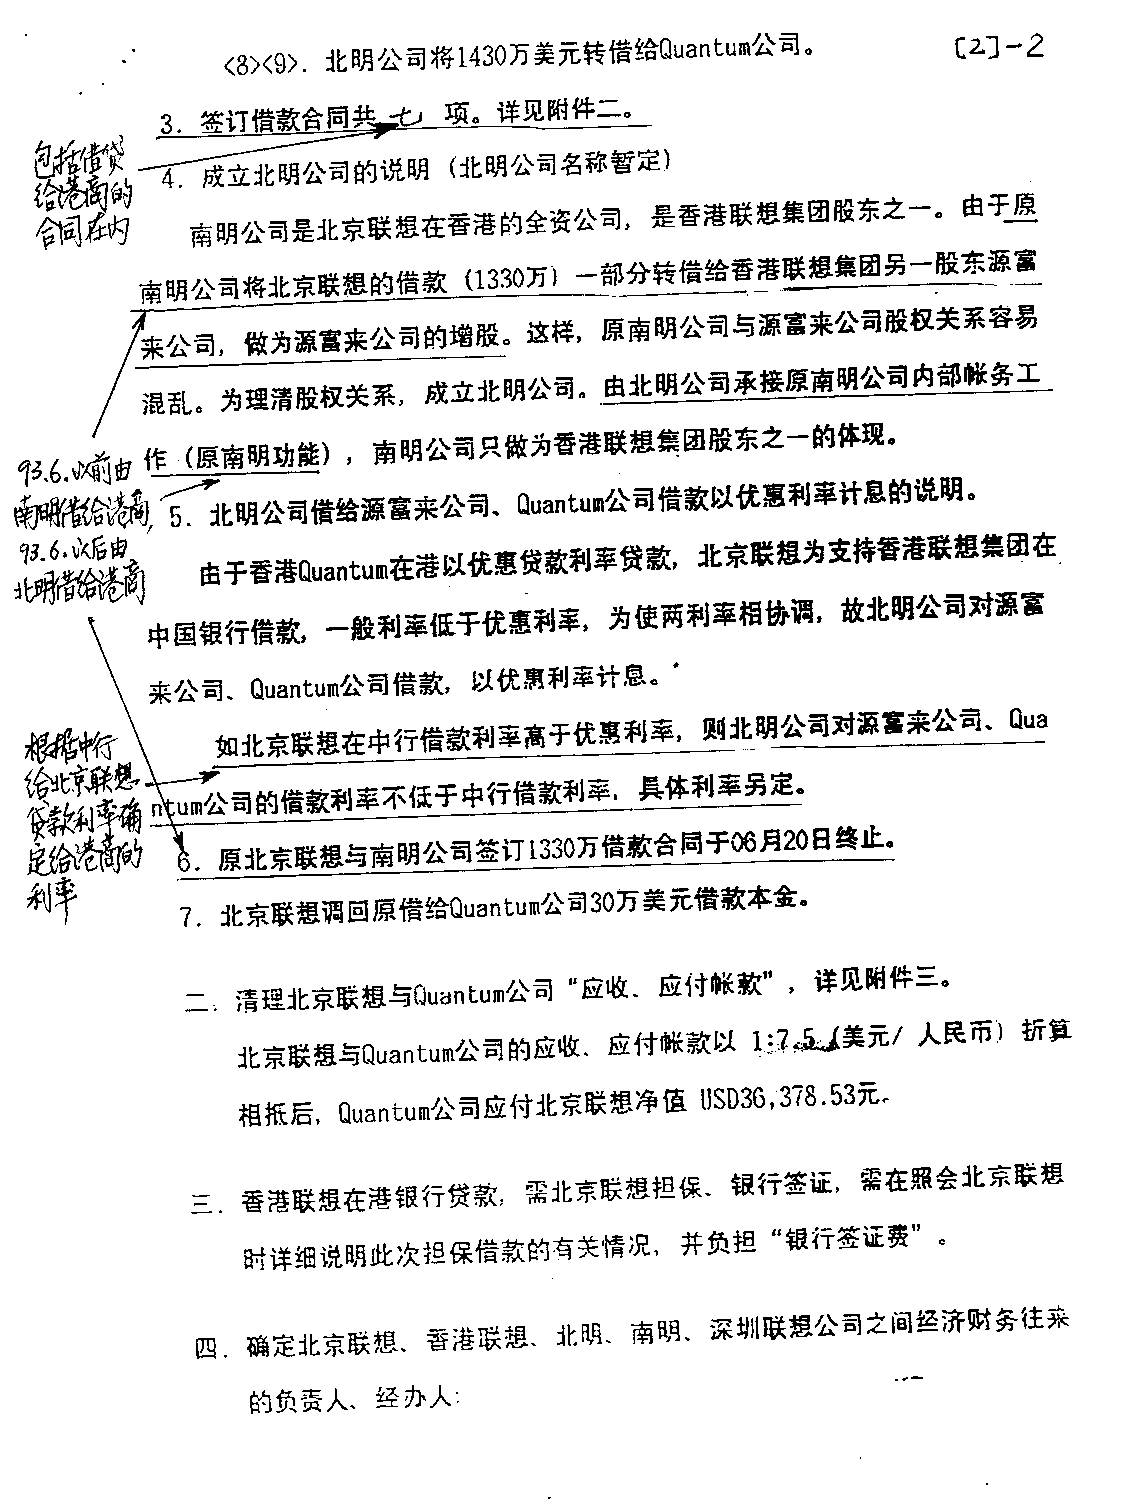 [2]-2
<8><9>. 北明公司将1430万美元转借给Quantum公司。
3. 签订借款合同共 七 项。详见附件二。
包括借贷
给港商的
合同在内
4. 成立北明公司的说明（北明公司名称暂定）
南明公司是北京联想在香港的全资公司，是香港联想集团股东之一。由于原
南明公司将北京联想的借款（1330万）一部分转借给香港联想集团另一股东源富
来公司，做为源富来公司的增股。这样，原南明公司与源富来公司股权关系容易
混乱。为理清股权关系，成立北明公司。由北明公司承接原南明公司内部帐务工
作（原南明功能），南明公司只做为香港联想集团股东之一的体现。
93.6.以前由
南明借给港商,
93.6.以后由
北明借给港商
5. 北明公司借给源富来公司、Quantum公司借款以优惠利率计息的说明。
由于香港Quantum在港以优惠贷款利率贷款，北京联想为支持香港联想集团在
中国银行借款，一般利率低于优惠利率，为使两利率相协调，故北明公司对源富
来公司、Quantum公司借款，以优惠利率计息。
如北京联想在中行借款利率高于优惠利率，则北明公司对源富来公司、Qua
ntum公司的借款利率不低于中行借款利率，具体利率另定。
根据中行
给北京联想
贷款利率确
定给港商的
利率
6. 原北京联想与南明公司签订1330万借款合同于06月20日终止。
7. 北京联想调回原借给Quantum公司30万美元借款本金。
二. 清理北京联想与Quantum公司“应收、应付帐款”，详见附件三。
北京联想与Quantum公司的应收、应付帐款以 1:7.5（美元/ 人民币）折算
相抵后，Quantum公司应付北京联想净值 USD36,378.53元。
三. 香港联想在港银行贷款，需北京联想担保、银行签证，需在照会北京联想
时详细说明此次担保借款的有关情况，并负担“银行签证费”。
四. 确定北京联想、香港联想、北明、南明、深圳联想公司之间经济财务往来
的负责人、经办人: